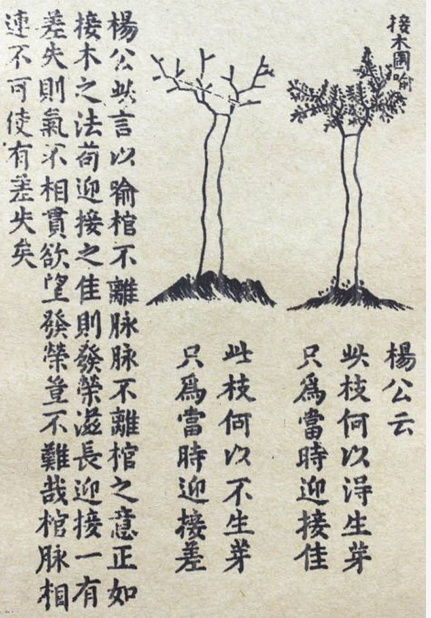 接木圖喻
楊公云
此枝何以淂生芽
只爲當時迎接佳
此枝何以不生芽
只爲當時迎接差
楊公此言以喻棺不離脉脉不離棺之意正如
接木之法苟迎接之佳則發榮滋長迎接一有
差失則氣不相貫欲望發榮豈不難哉棺脉相
連不可使有差失矣